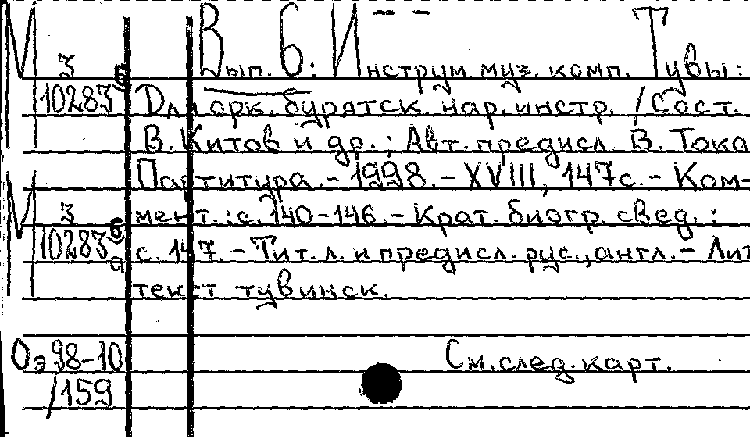 М 3 Вып. 6: Инструм. муз. комп. Тувы:
10283 Для орк. бурятск. нар. инстр. / Сост.
В. Китов и др.; Авт. предисл. В. Тока
Партитура. - 1998. - XVIII, 147с. - Ком-
М 3 мент.: с. 140-146. - Крат. биогр. свед.:
10283 с. 147. - Тит. л. и предисл. рус., англ. - Лит
текст тувинск.
Оэ98-10 См. след. карт.
/159